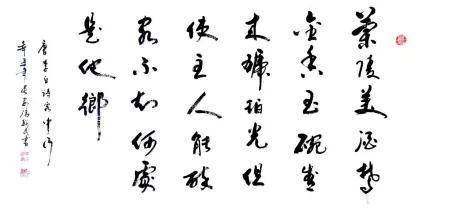 蘭陵美酒鬱
金香玉碗盛
来琥珀光但
使主人能醉
客不知何處
是他鄉
唐李白詩客中作
辛丑年書